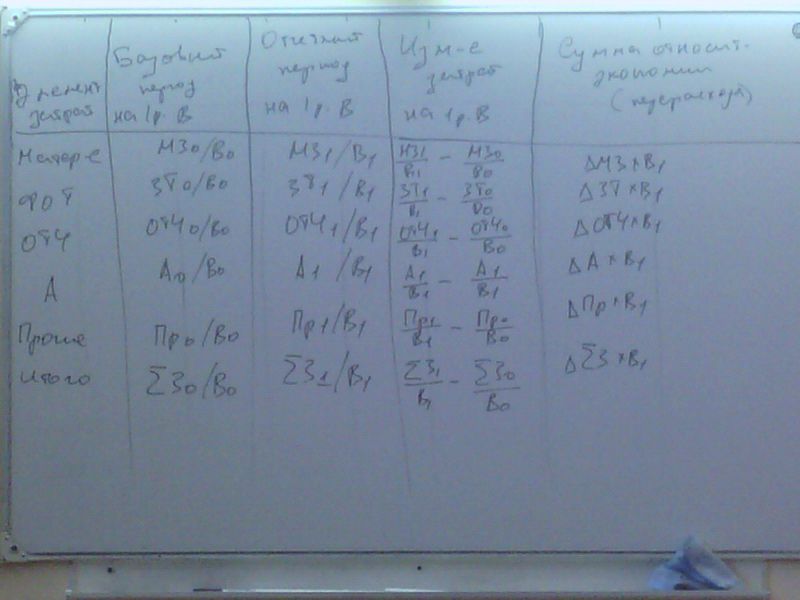 Элемент затрат | Базовый период на 1р. В | Отчетный период на 1р. В | Изм-е затрат на 1р. В | Сумма относит. экономии (перерасхода)
Матер-е | МЗ0/В0 | МЗ1/В1 | МЗ1/В1 - МЗ0/В0 | ΔМЗ×В1
ФОТ | ЗТ0/В0 | ЗТ1/В1 | ЗТ1/В1 - ЗТ0/В0 | ΔЗТ×В1
ОТЧ | ОТЧ0/В0 | ОТЧ1/В1 | ОТЧ1/В1 - ОТЧ0/В0 | ΔОТЧ×В1
А | А0/В0 | А1/В1 | А1/В1 - А1/В1 | ΔА×В1
Прочие | Пр0/В0 | Пр1/В1 | Пр1/В1 - Пр0/В0 | ΔПр×В1
Итого | ΣЗ0/В0 | ΣЗ1/В1 | ΣЗ1/В1 - ΣЗ0/В0 | ΔΣЗ×В1